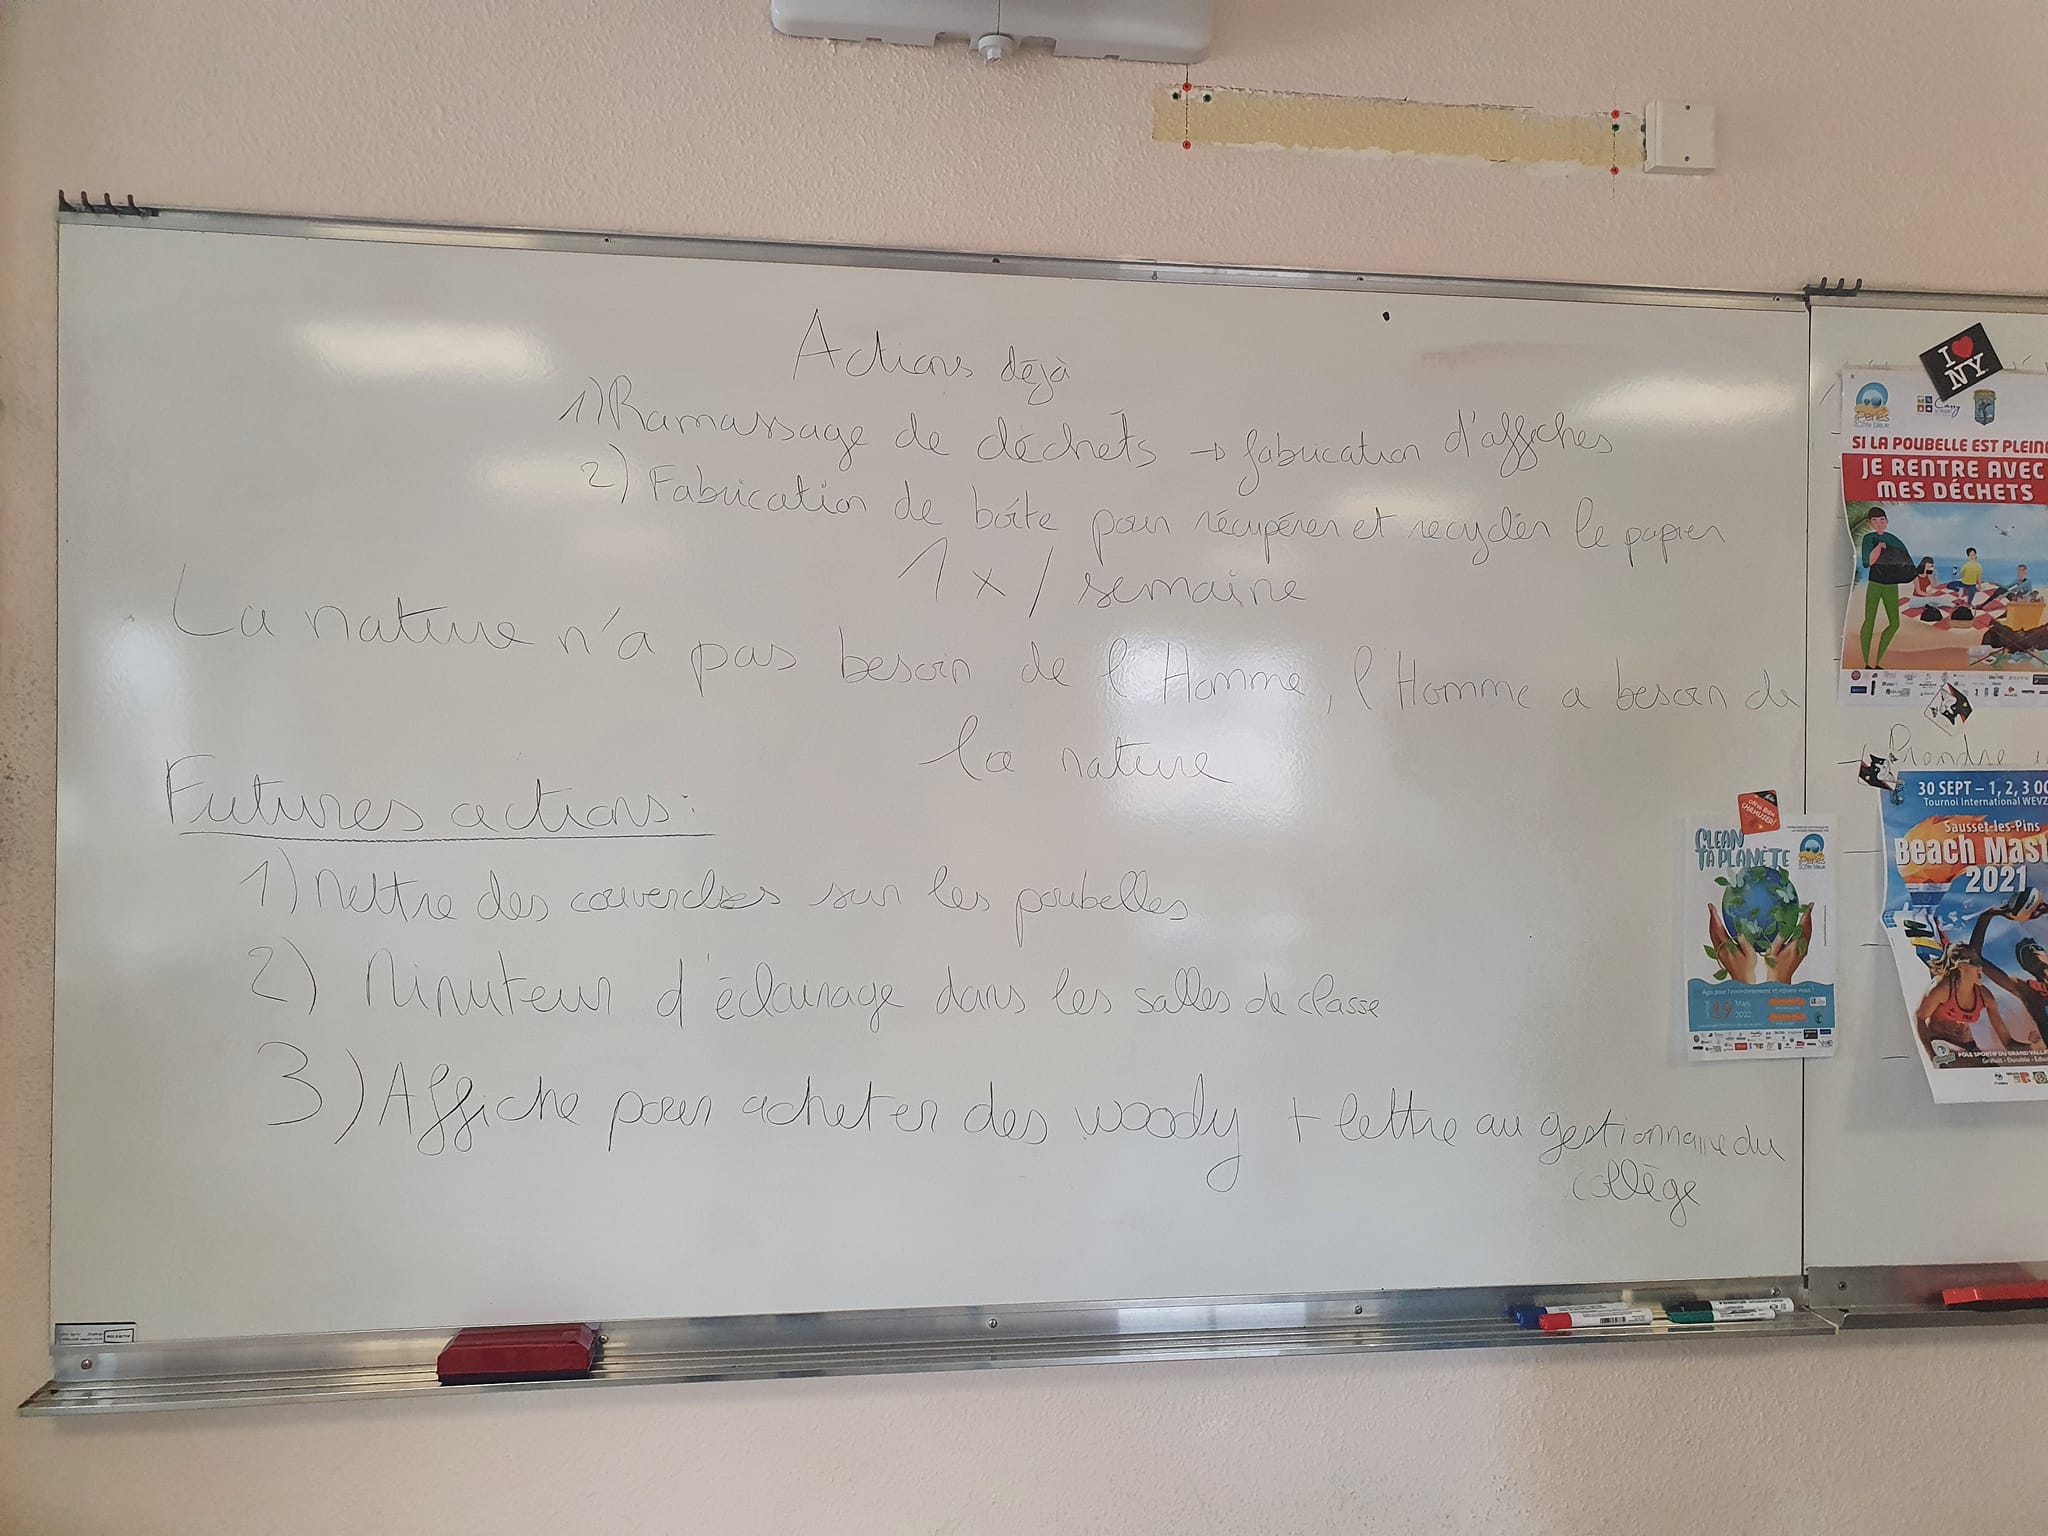 Actions déjà
1) Ramassage de déchets → fabrication d'affiches
2) Fabrication de boîte pour récupérer et recycler le papier
1 x / semaine
La nature n'a pas besoin de l'Homme, l'Homme a besoin de
la nature
Futures actions:
1) Mettre des couvercles sur les poubelles
2) Minuteur d'éclairage dans les salles de classe
3) Affiche pour acheter des woody + lettre au gestionnaire du
collège
I ♥
NY
SI LA POUBELLE EST PLEINE
JE RENTRE AVEC
MES DÉCHETS
Prendre
30 SEPT – 1, 2, 3 OC
Tournoi International WEVZ
Sausset-les-Pins
Beach Mast
2021
CLEAN
TA PLANÈTE
Agis pour l'environnement et rejoins-nous !
Mars
2022
PÔLE SPORTIF DU GRAND VALLAT